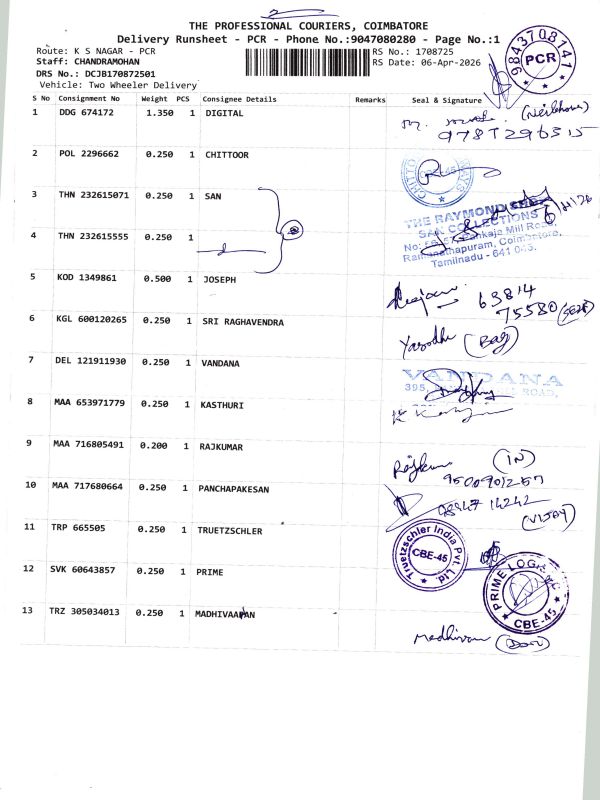 2
THE PROFESSIONAL COURIERS, COIMBATORE
Delivery Runsheet - PCR - Phone No.:9047080280 - Page No.:1
Route: K S NAGAR - PCR
RS No.: 1708725
Staff: CHANDRAMOHAN
RS Date: 06-Apr-2026
DRS No.: DCJB170872501
Vehicle: Two Wheeler Delivery
9843708141
PCR
S No Consignment No Weight PCS Consignee Details Remarks Seal & Signature
1 DDG 674172 1.350 1 DIGITAL
2 POL 2296662 0.250 1 CHITTOOR
3 THN 232615071 0.250 1 SAN
THE RAYMOND
SAN COLLECTIONS
Mill Road,
Ramanathapuram, Coimbatore,
Tamilnadu - 641 045.
4 THN 232615555 0.250 1
5 KOD 1349861 0.500 1 JOSEPH
63814
75580
6 KGL 600120265 0.250 1 SRI RAGHAVENDRA
Yasodha (Bag)
7 DEL 121911930 0.250 1 VANDANA
VANDANA
395, ROAD,
8 MAA 653971779 0.250 1 KASTHURI
9 MAA 716805491 0.200 1 RAJKUMAR
Rajkumar (IN)
10 MAA 717680664 0.250 1 PANCHAPAKESAN
(VIJAY)
11 TRP 665505 0.250 1 TRUETZSCHLER
Truetzschler India Pvt. Ltd
CBE-45
12 SVK 60643857 0.250 1 PRIME
PRIME LOG
CBE-45
13 TRZ 305034013 0.250 1 MADHIVAANAN